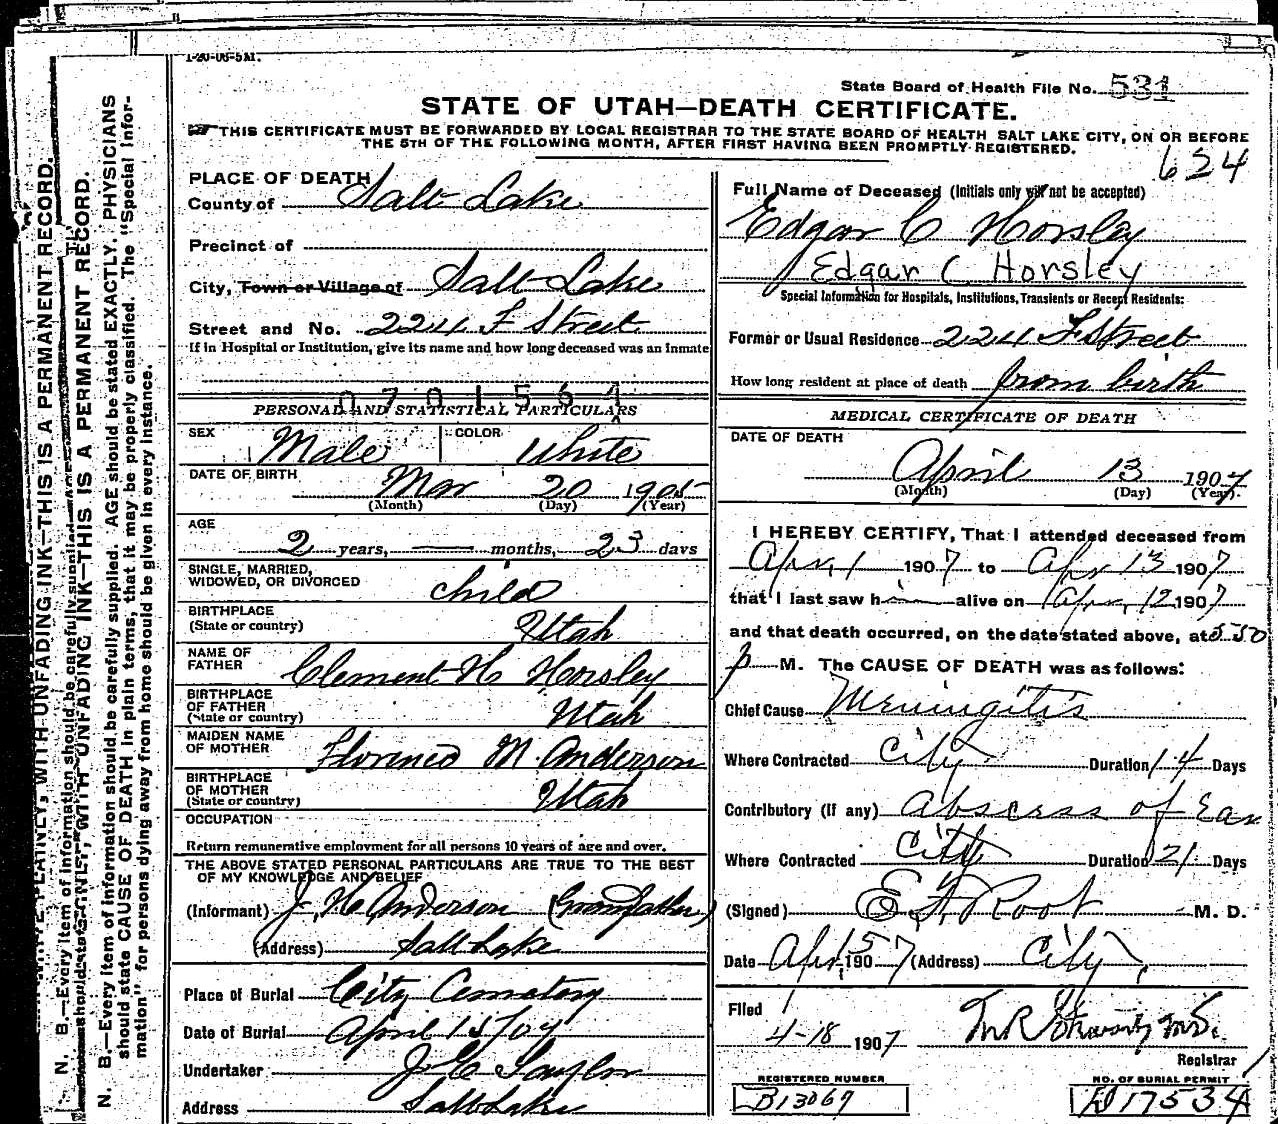 1-20-06-5M.
State Board of Health File No. 531
STATE OF UTAH—DEATH CERTIFICATE.
THIS CERTIFICATE MUST BE FORWARDED BY LOCAL REGISTRAR TO THE STATE BOARD OF HEALTH SALT LAKE CITY, ON OR BEFORE
THE 5TH OF THE FOLLOWING MONTH, AFTER FIRST HAVING BEEN PROMPTLY REGISTERED.
624
PLACE OF DEATH
County of Salt Lake
Precinct of
City, Town or Village of Salt Lake
Street and No. 224 F Street
If in Hospital or Institution, give its name and how long deceased was an Inmate
0701564
PERSONAL AND STATISTICAL PARTICULARS
SEX Male COLOR White
DATE OF BIRTH Mar 20 1905
(Month) (Day) (Year)
AGE
2 years, — months, 23 days
SINGLE, MARRIED,
WIDOWED, OR DIVORCED child
BIRTHPLACE
(State or country) Utah
NAME OF
FATHER Clement H Horsley
BIRTHPLACE
OF FATHER
(State or country) Utah
MAIDEN NAME
OF MOTHER Florence M Anderson
BIRTHPLACE
OF MOTHER
(State or country) Utah
OCCUPATION
Return remunerative employment for all persons 10 years of age and over.
THE ABOVE STATED PERSONAL PARTICULARS ARE TRUE TO THE BEST
OF MY KNOWLEDGE AND BELIEF
(Informant) J. H Anderson (Grandfather)
(Address) Salt Lake
Place of Burial City Cemetery
Date of Burial April 15/07
Undertaker J. E Taylor
Address Salt Lake
Full Name of Deceased (Initials only will not be accepted)
Edgar C Horsley
Edgar C Horsley
Special Information for Hospitals, Institutions, Transients or Recent Residents:
Former or Usual Residence 224 F Street
How long resident at place of death from birth
MEDICAL CERTIFICATE OF DEATH
DATE OF DEATH
April 13 1907
(Month) (Day) (Year).
I HEREBY CERTIFY, That I attended deceased from
Apr, 1 1907 to Apr 13 1907
that I last saw him alive on Apr, 12 1907
and that death occurred, on the date stated above, at 5.50
p M. The CAUSE OF DEATH was as follows:
Chief Cause Meningitis
Where Contracted City Duration 14 Days
Contributory (If any) Abscess of Ear
Where Contracted City Duration 21 Days
(Signed) E. F. Root M. D.
Date Apr 15 1907 (Address) City,
Filed
4-18 1907
Registrar
REGISTERED NUMBER
B13067
NO. OF BURIAL PERMIT
17534
N. B.—Every item of information should be carefully supplied. AGE should be stated EXACTLY. PHYSICIANS
should state CAUSE OF DEATH in plain terms, that it may be properly classified. The "Special Infor-
mation" for persons dying away from home should be given in every instance.
WITH UNFADING INK—THIS IS A PERMANENT RECORD.